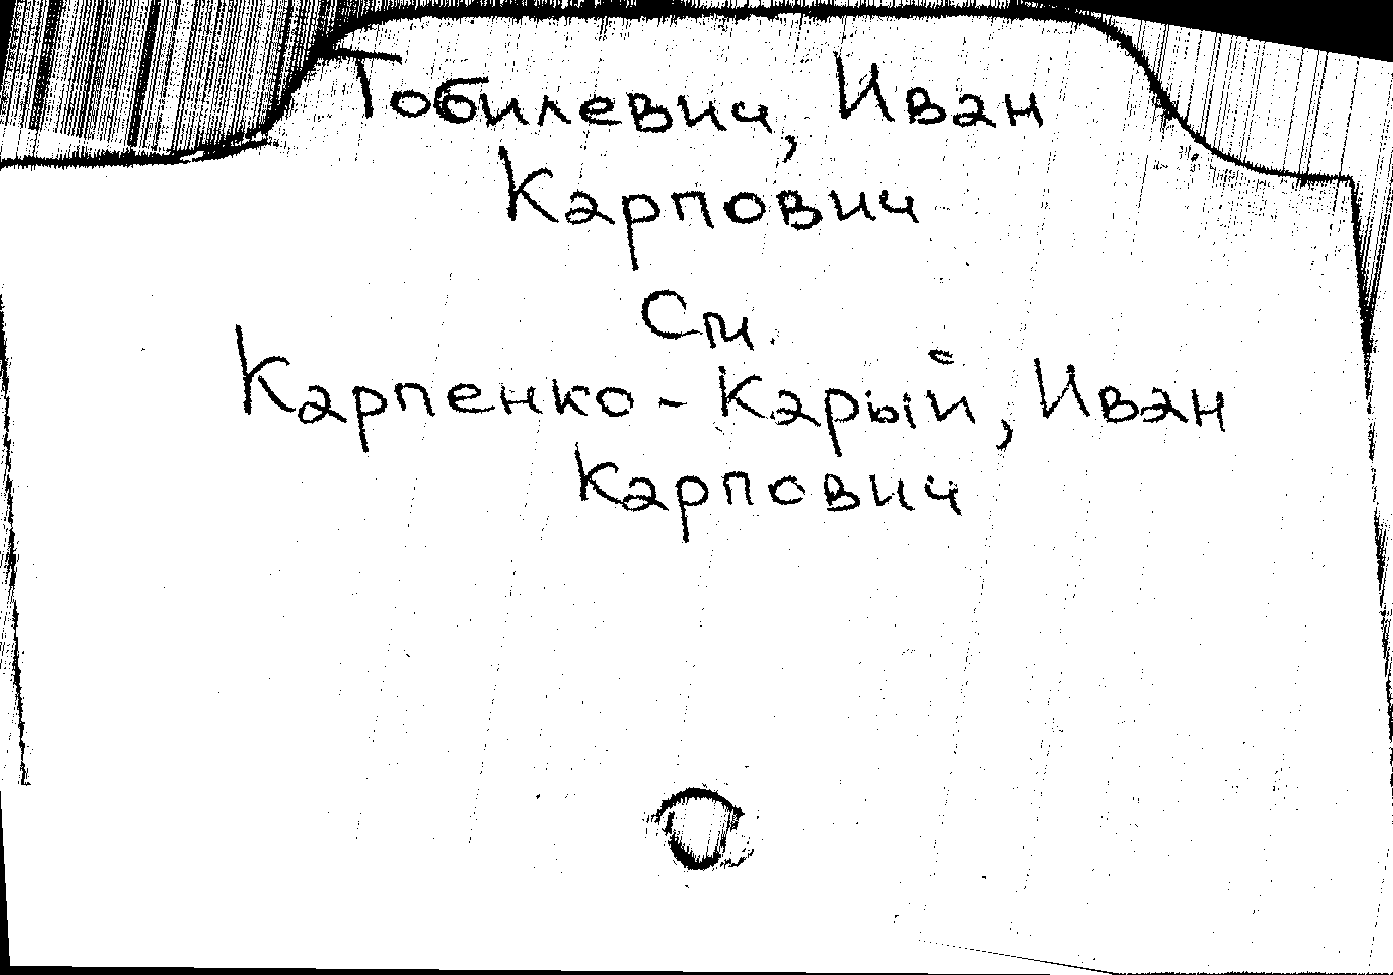 Тобилевич, Иван
Карпович
См.
Карпенко-Карый, Иван
Карпович